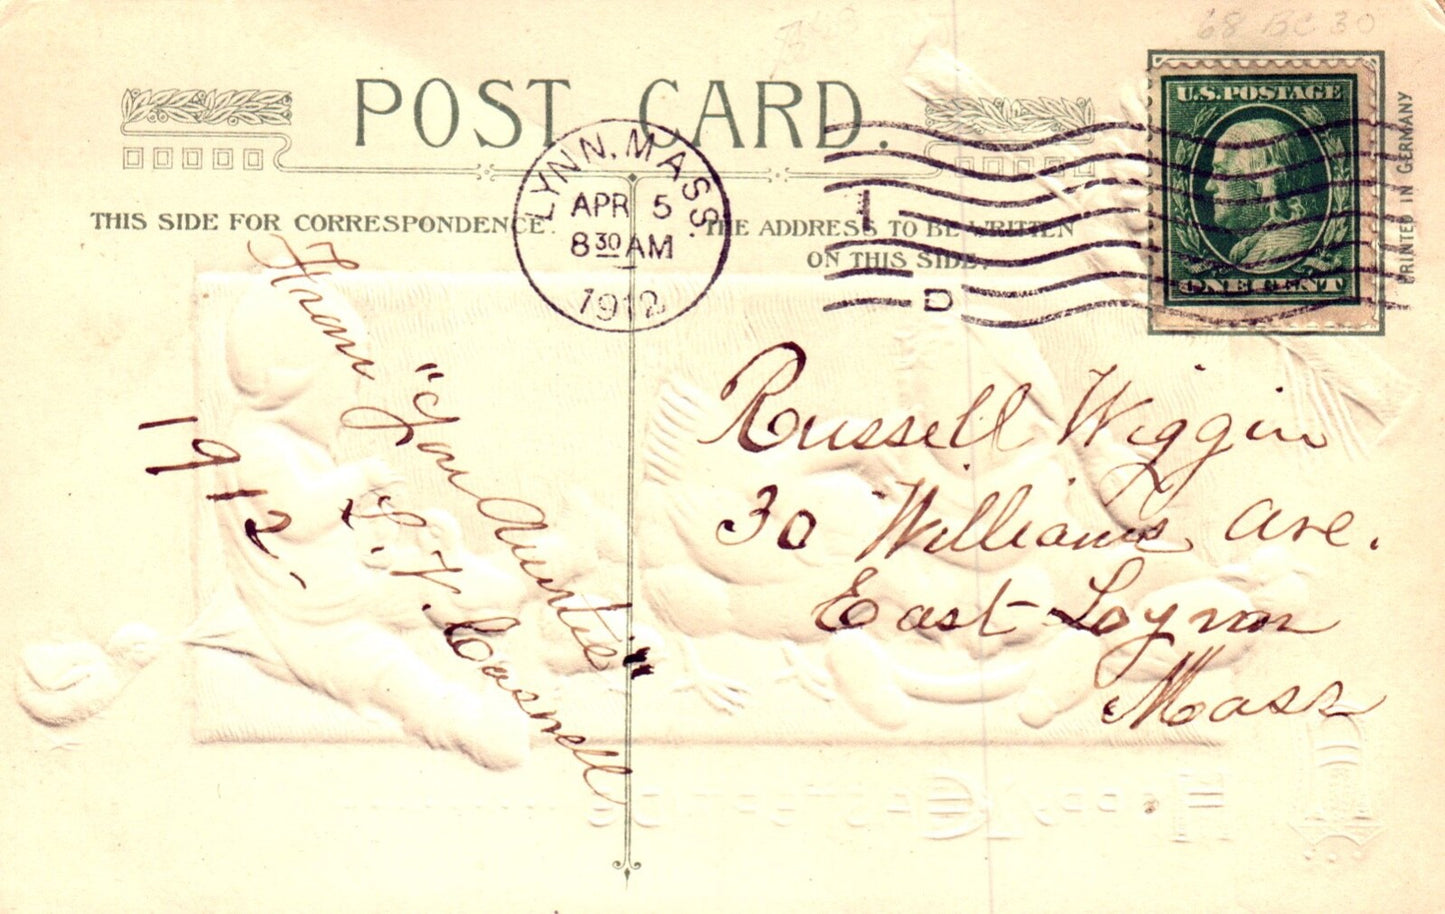 68 BC 30
POST CARD.
U.S. POSTAGE
ONE CENT
PRINTED IN GERMANY
LYNN, MASS.
APR 5
8 30 AM
1912
D
THIS SIDE FOR CORRESPONDENCE.
THE ADDRESS TO BE WRITTEN
ON THIS SIDE.
From
"Your Auntie"
1912-
Russell Wiggin
30 Williams ave.
East Lynn
Mass